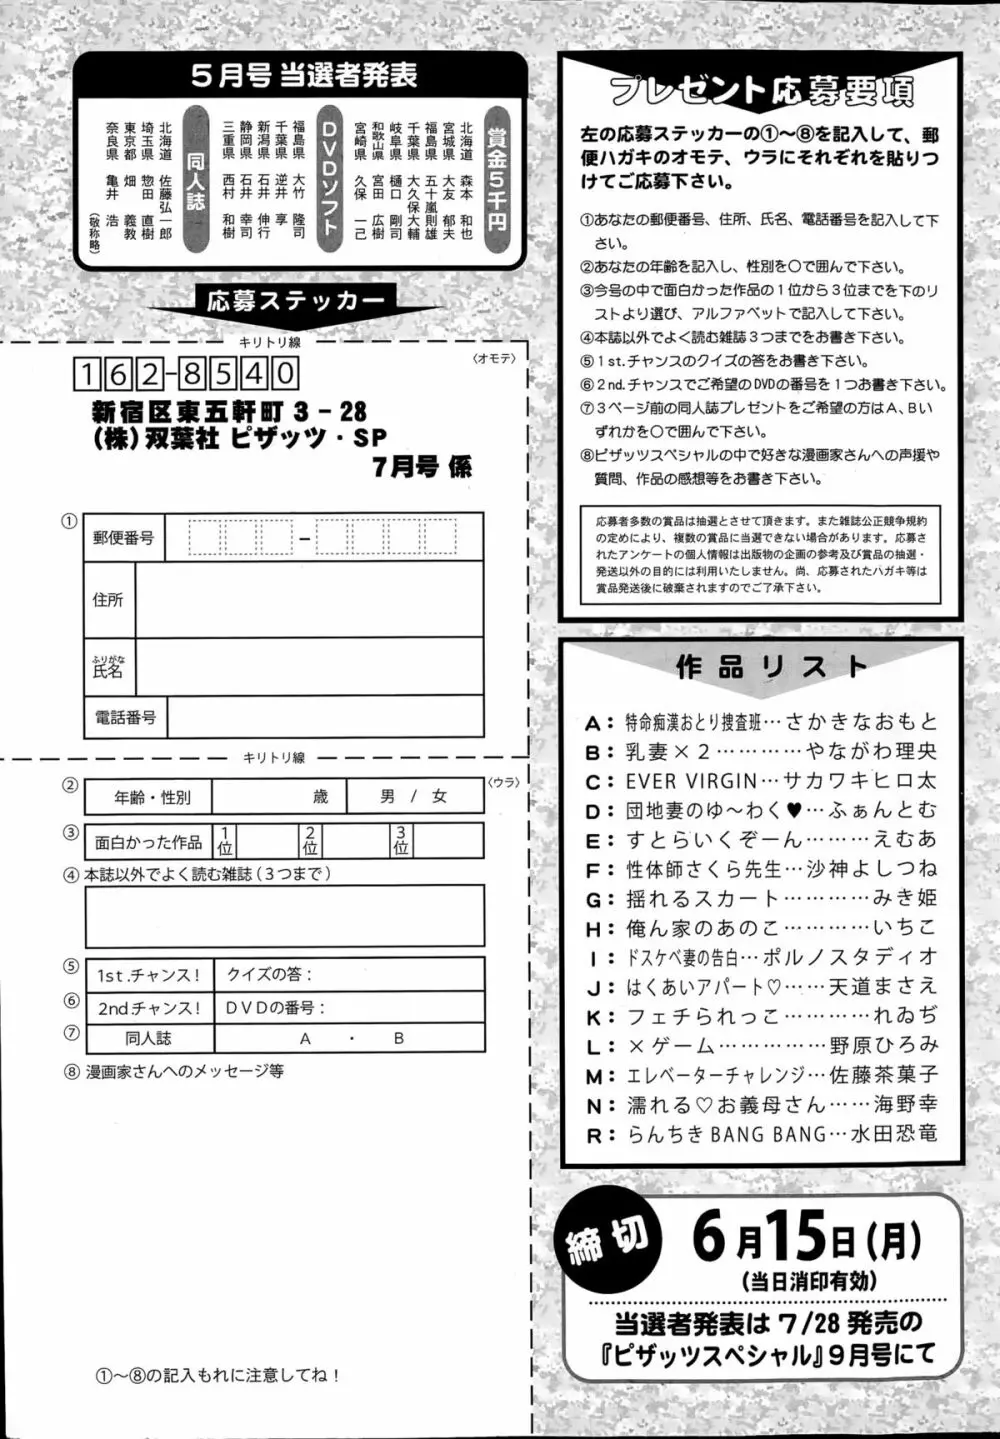 5月号 当選者発表
賞金5千円
北海道 森本 和也
宮城県 大友 郁夫
福島県 五十嵐則雄
千葉県 大久保大輔
岐阜県 樋口 剛司
和歌山県 宮田 広樹
宮崎県 久保 一己
DVDソフト
福島県 大竹 隆司
千葉県 逆井 享
新潟県 石井 伸行
静岡県 石井 幸司
三重県 西村 和樹
同人誌
北海道 佐藤弘一郎
埼玉県 惣田 直樹
東京都 畑 義教
奈良県 亀井 浩
(敬称略)
応募ステッカー
キリトリ線
〈オモテ〉
162-8540
新宿区東五軒町 3-28
(株) 双葉社 ピザッツ・SP
7月号 係
①
郵便番号
-
住所
ふりがな
氏名
電話番号
キリトリ線
〈ウラ〉
② 年齢・性別 歳 男 / 女
③ 面白かった作品 1位 2位 3位
④ 本誌以外でよく読む雑誌(3つまで)
⑤ 1st.チャンス! クイズの答:
⑥ 2ndチャンス! DVDの番号:
⑦ 同人誌 A ・ B
⑧ 漫画家さんへのメッセージ等
①〜⑧の記入もれに注意してね!
プレゼント応募要項
左の応募ステッカーの①〜⑧を記入して、郵
便ハガキのオモテ、ウラにそれぞれを貼りつ
けてご応募下さい。
①あなたの郵便番号、住所、氏名、電話番号を記入して下
さい。
②あなたの年齢を記入し、性別を〇で囲んで下さい。
③今号の中で面白かった作品の1位から3位までを下のリ
ストより選び、アルファベットで記入して下さい。
④本誌以外でよく読む雑誌3つまでをお書き下さい。
⑤1st.チャンスのクイズの答をお書き下さい。
⑥2nd.チャンスでご希望のDVDの番号を1つお書き下さい。
⑦3ページ前の同人誌プレゼントをご希望の方はA、Bい
ずれかを〇で囲んで下さい。
⑧ピザッツスペシャルの中で好きな漫画家さんへの声援や
質問、作品の感想等をお書き下さい。
応募者多数の賞品は抽選とさせて頂きます。また雑誌公正競争規約
の定めにより、複数の賞品に当選できない場合があります。応募さ
れたアンケートの個人情報は出版物の企画の参考及び賞品の抽選・
発送以外の目的には利用いたしません。尚、応募されたハガキ等は
賞品発送後に破棄されますのでご了承下さい。
作品リスト
A:特命痴漢おとり捜査班…さかきなおもと
B:乳妻×2…………やながわ理央
C:EVER VIRGIN…サカワキヒロ太
D:団地妻のゆ〜わく♥…ふぁんとむ
E:すとらいくぞーん………えむあ
F:性体師さくら先生…沙神よしつね
G:揺れるスカート…………みき姫
H:俺ん家のあのこ…………いちこ
I:ドスケベ妻の告白…ポルノスタディオ
J:はくあいアパート♡……天道まさえ
K:フェチられっこ…………れゐぢ
L:×ゲーム……………野原ひろみ
M:エレベーターチャレンジ…佐藤茶菓子
N:濡れる♡お義母さん……海野幸
R:らんちき BANG BANG…水田恐竜
締切
6月15日(月)
(当日消印有効)
当選者発表は7/28発売の
『ピザッツスペシャル』9月号にて